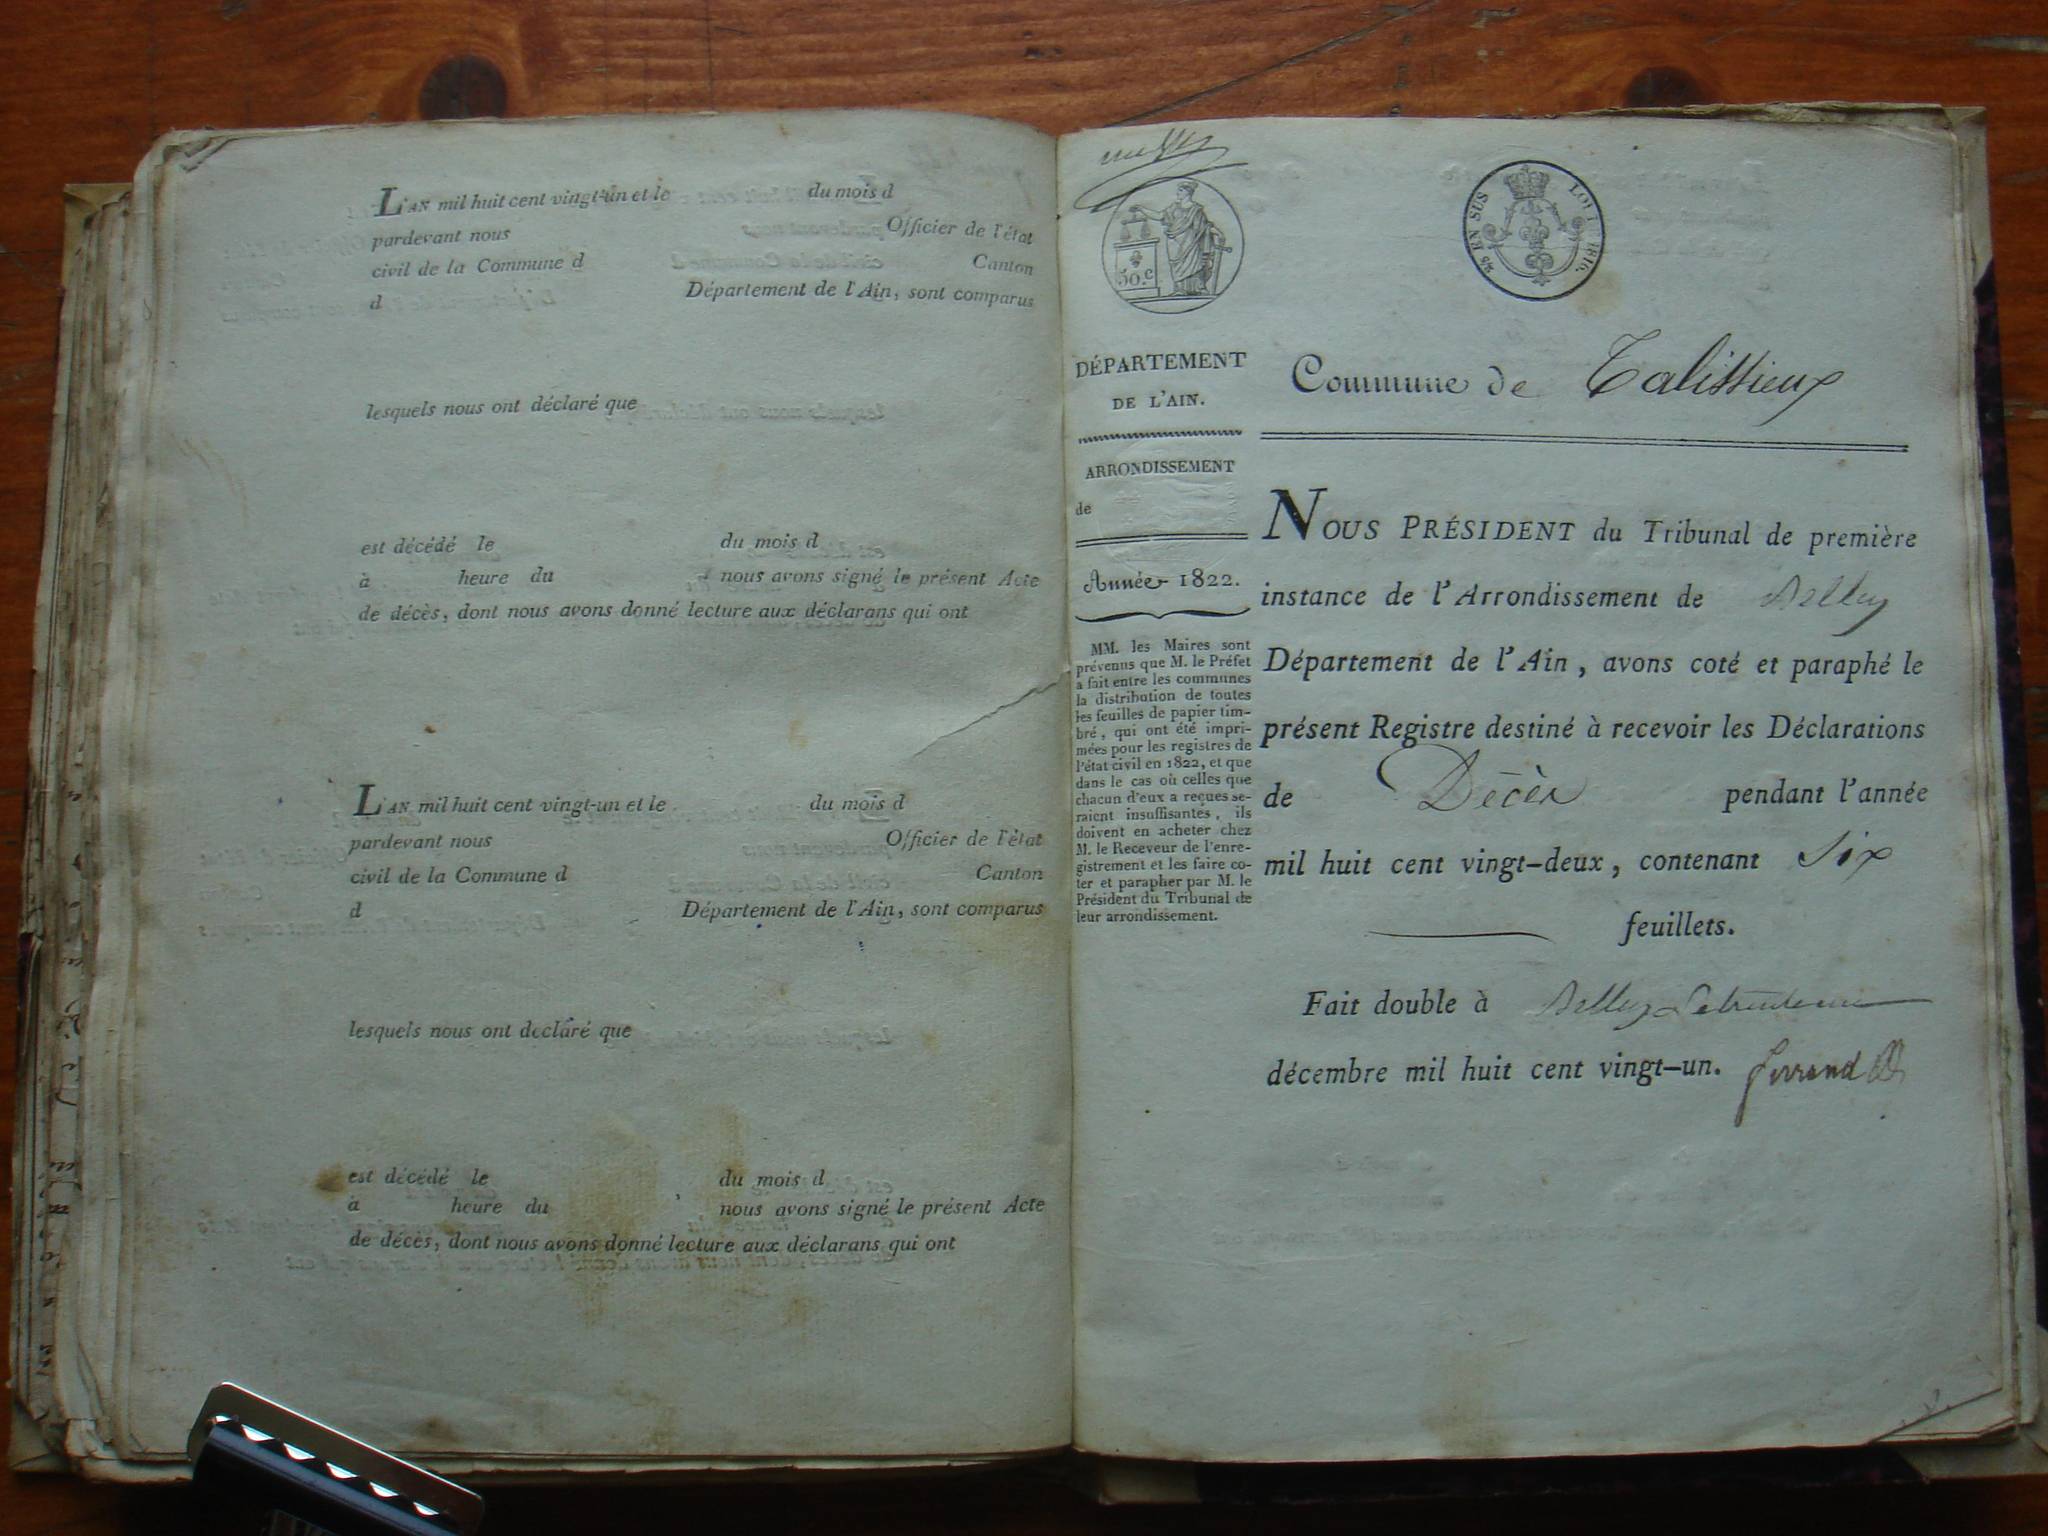 L'AN mil huit cent vingt-un et le du mois d
pardevant nous Officier de l'état
civil de la Commune d Canton
d Département de l'Ain, sont comparus
lesquels nous ont déclaré que
est décédé le du mois d
à heure du nous avons signé le présent Acte
de décès, dont nous avons donné lecture aux déclarans qui ont
L'AN mil huit cent vingt-un et le du mois d
pardevant nous Officier de l'état
civil de la Commune d Canton
d Département de l'Ain, sont comparus
lesquels nous ont déclaré que
est décédé le du mois d
à heure du nous avons signé le présent Acte
de décès, dont nous avons donné lecture aux déclarans qui ont
50.c
EN SUS
DÉPARTEMENT
DE L'AIN.
ARRONDISSEMENT
de
Année 1822.
MM. les Maires sont
prévenus que M. le Préfet
a fait entre les communes
la distribution de toutes
les feuilles de papier tim-
bré, qui ont été impri-
mées pour les registres de
l'état civil en 1822, et que
dans le cas où celles que
chacun d'eux a reçues se-
raient insuffisantes, ils
doivent en acheter chez
M. le Receveur de l'enre-
gistrement et les faire co-
ter et parapher par M. le
Président du Tribunal de
leur arrondissement.
Commune de Talissieux
NOUS PRÉSIDENT du Tribunal de première
instance de l'Arrondissement de Belley
Département de l'Ain, avons coté et paraphé le
présent Registre destiné à recevoir les Déclarations
de Décès pendant l'année
mil huit cent vingt-deux, contenant Six
feuillets.
Fait double à Belley
décembre mil huit cent vingt-un. Ferrand